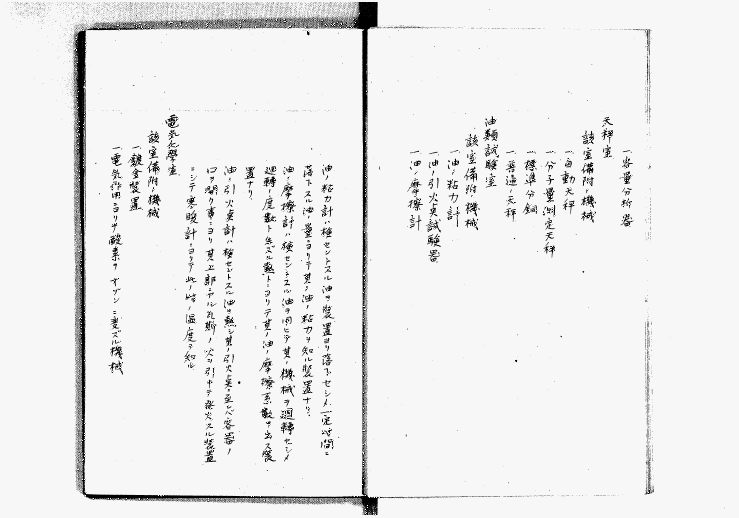 一容量分析器
天秤室
該室備附ノ機械
一自動天秤
一分子量測定天秤
一標準分銅
一普通ノ天秤
油類試験室
該室備附ノ機械
一油ノ粘力計
一油ノ引火点試験器
一油ノ摩擦計
油ノ粘力計ハ検セントスル油ヲ装置ヨリ落下セシメ一定時間ニ
落下スル油ノ量ニヨリテ其ノ油ノ粘力ヲ知ル装置ナリ
油ノ摩擦計ハ検セントスル油ヲ用ヒテ其ノ機械ヲ廻轉セシメ
廻轉ノ度数ト生ズル熱トニヨリテ其ノ油ノ摩擦系数ヲ出ス装
置ナリ
油ノ引火点計ハ検セントスル油ヲ熱シ其ノ引火点ニ至レバ容器ノ
口ヲ開ク事ニヨリ其上部ニアル瓦斯ノ火ヲ引キテ発火スル装置
ニシテ寒暖計ニヨリテ此ノ時ノ温度ヲ知ル
電気化学室
該室備附ノ機械
一鍍金装置
一電気作用ニヨリテ酸素ヲオゾンニ変ズル機械